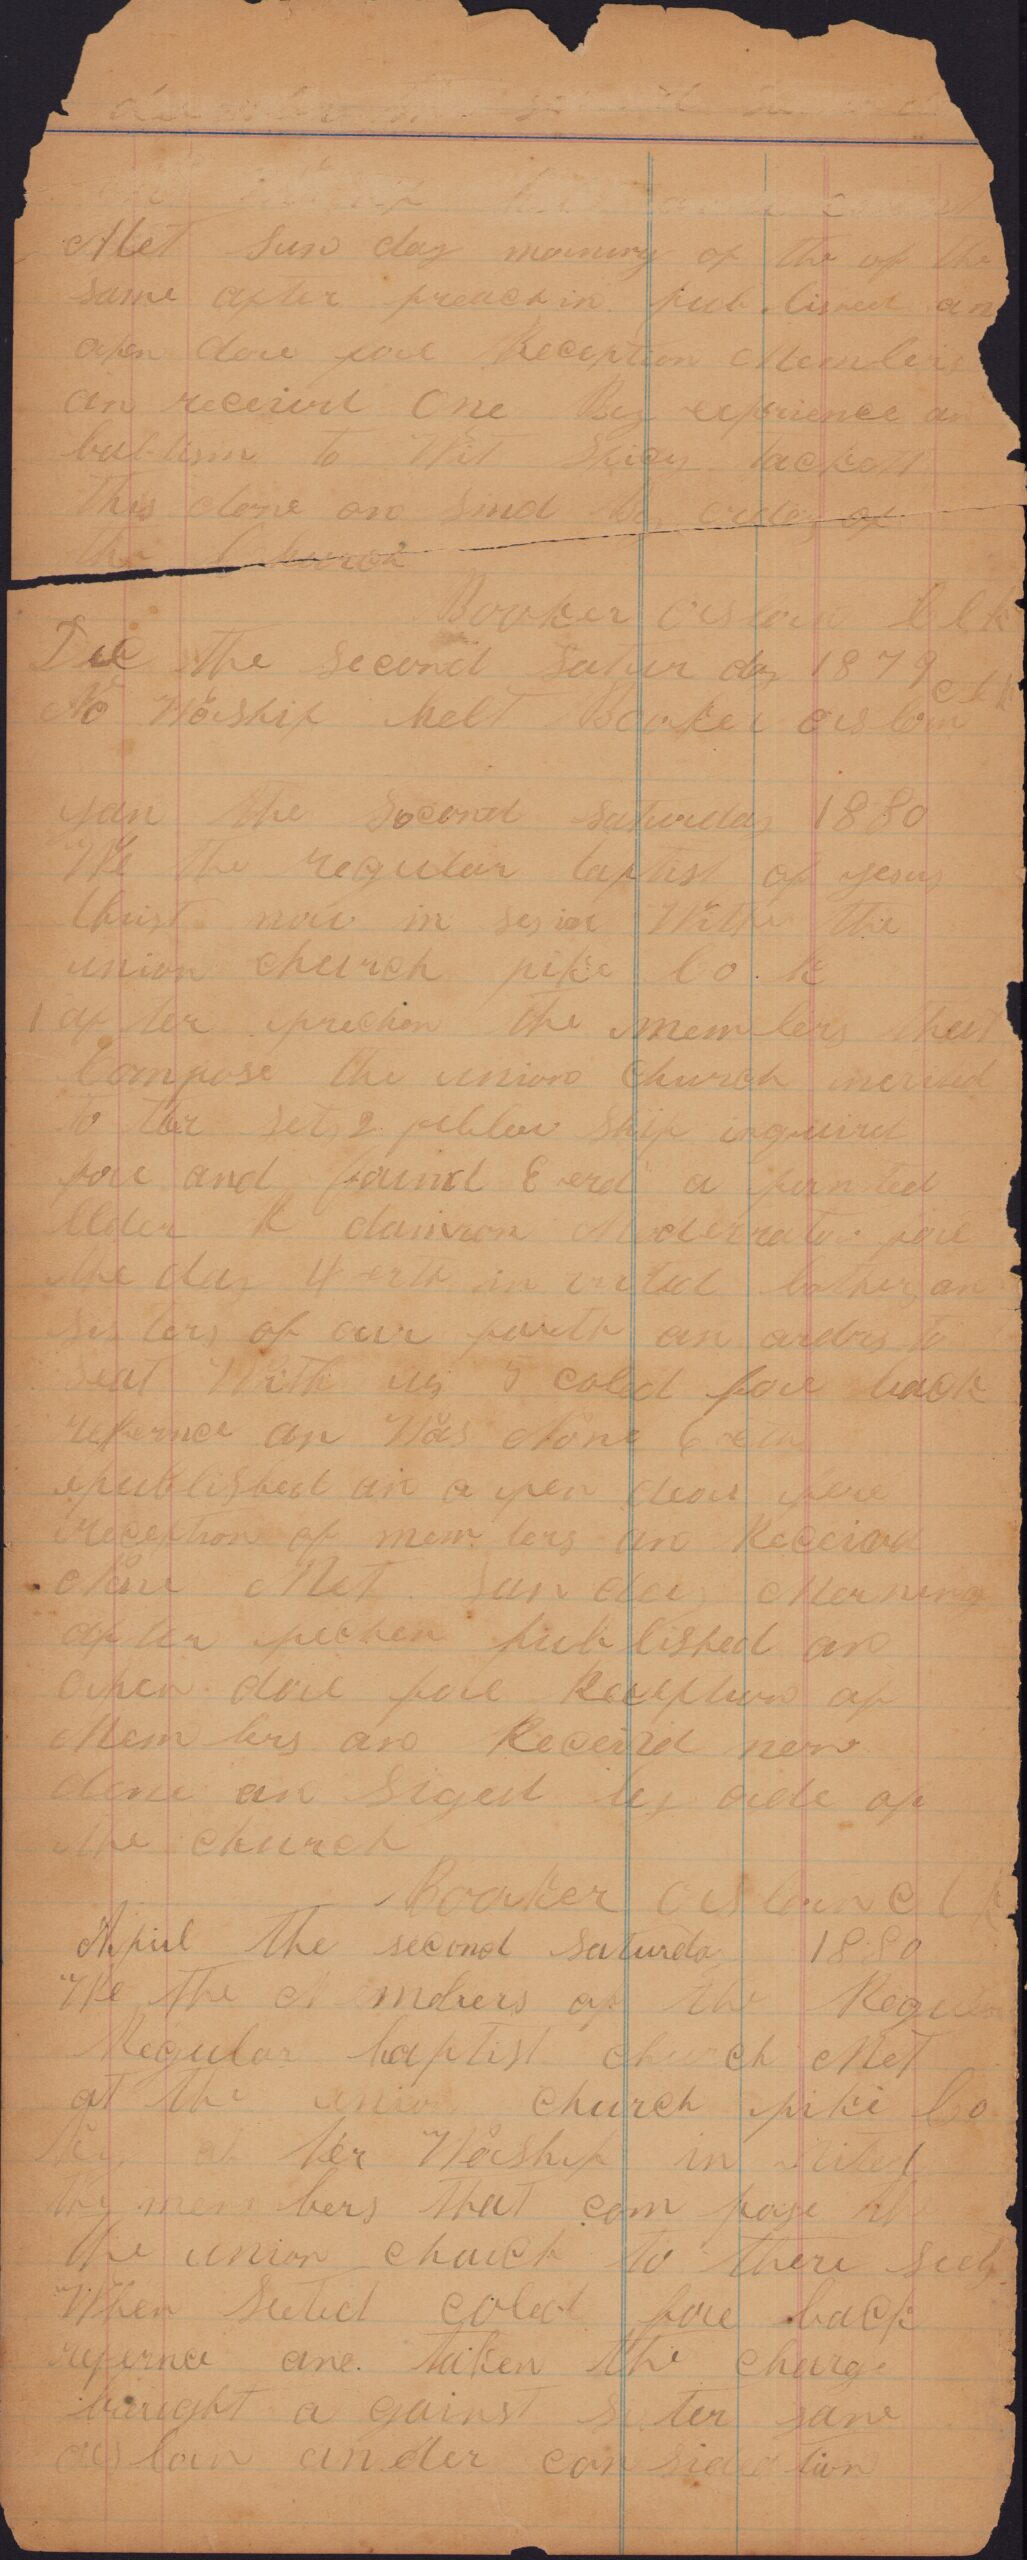 Met Sun day morning of the of the
same after preach in pub lished an
open dore fore Reception Members
an receivd One By exprience an
babtism to Wit Spicy
this done an Sind By order of
the Church
Booker aslain Clk
Dec the second satur day 1879
No Worship helt Booker aslain clk
jan the second saturday 1880
We the regular baptist of jesus
Christ now in sesion With the
union church pike Co. K
1 after prechen the members that
Compose the union church invited
to ther sets 2 fellow ship inquird
fore and found 3 erd a pointed
Elder K damron Moderrator fore
the day 4 erth in vited bothers an
sisters of our faith an orders to
seat With us 5 coled fore back
refernce an Was None 6 eth
published an o pen dore fore
reception of mem bers an Receivd
None Met sun day Morning
after prechen published an
open dore fore Reception of
Mem bers an Receivd non
done an Siged by orde of
the church
Booker aslain Clk
April the second saturda 1880
We the Members of the Regular
Regular baptist church Met
at the union church pike Co
Ky af ter Worship in vited
the mem bers that com pose th
the union church to there sets
When seted coled fore back
refernce ane taken the charge
braught a gainst sister jane
aslain under con sideation